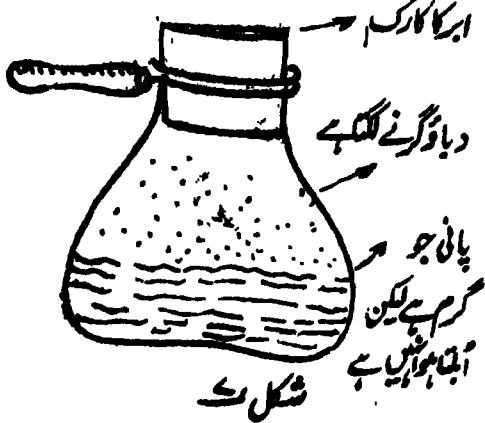 ابر کا کارک
دباؤ گرنے لگتا ہے
پانی جو
گرم ہے لیکن
اُبلتا ہوا نہیں ہے
شکل